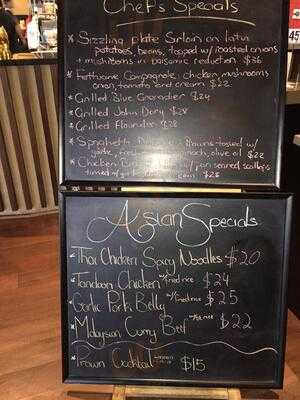 Chef's Specials
* Sizzling plate Sirloin on Latin
potatoes, beans, topped w/ roasted onions
+ mushrooms in balsamic reduction $36
* Fettucine Campagnole, chicken, mushrooms
onion, tomato and cream $22
* Grilled Blue Grenadier $24
* Grilled John Dory $28
* Grilled Flounder $28
* Spaghetti Prawns tossed w/
garlic, spinach, olive oil $22
* Chicken w/ pan seared scallops
w/ $28
45
Asian Specials
* Thai Chicken Spicy Noodles $20
* Tandoori Chicken w/ Fried rice $24
* Garlic Pork Belly w/ Fried rice $25
* Malaysian Curry Beef w/ rice $22
* Prawn Cocktail $15